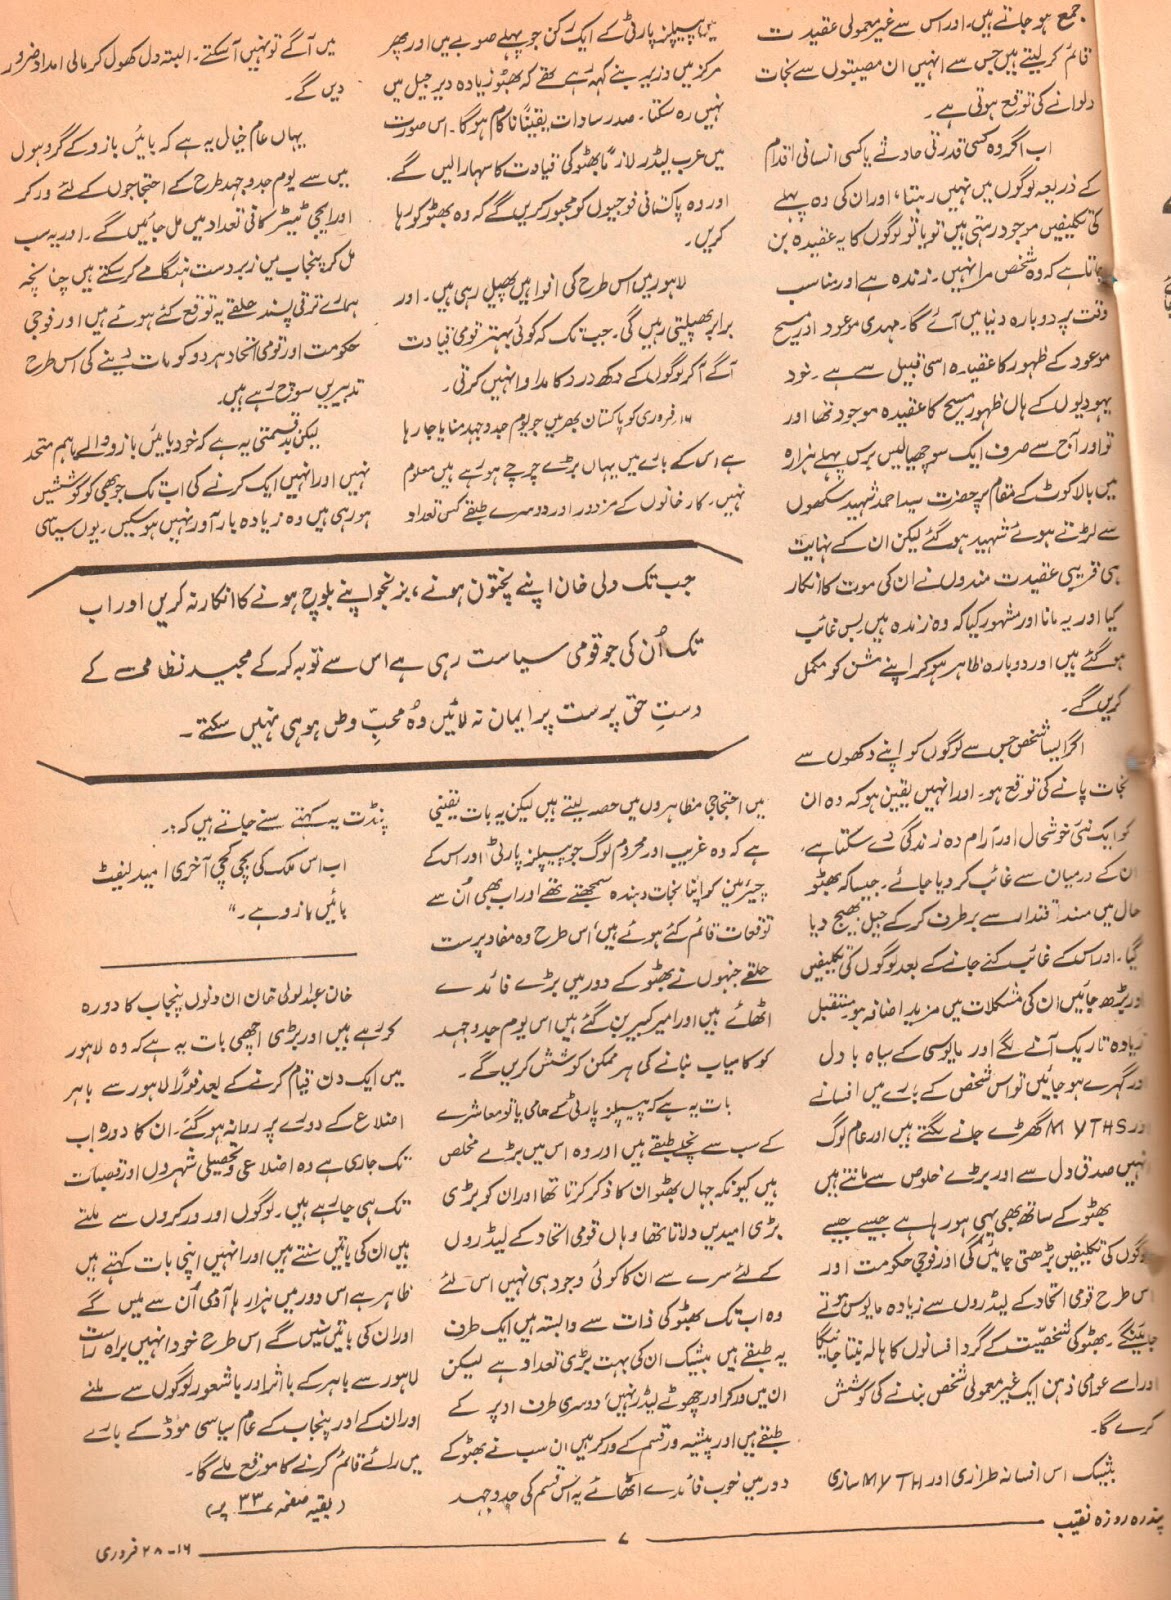 جمع ہو جاتے ہیں۔ اور اس سے غیر معمولی عقیدت
قائم کر لیتے ہیں جس سے انہیں ان مصیبتوں سے نجات
دلوانے کی توقع ہوتی ہے۔
اب اگر وہ کسی قدرتی حادثے یا کسی انسانی اقدام
کے ذریعہ لوگوں میں نہیں رہتا، اور ان کی وہ پہلے
کی تکلیفیں موجود رہتی ہیں تو یا تو لوگوں کا یہ عقیدہ بن
جاتا ہے کہ وہ شخص مرا نہیں۔ زندہ ہے اور مناسب
وقت پر دوبارہ دنیا میں آئے گا۔ مہدی موعود اور مسیح
موعود کے ظہور کا عقیدہ اسی قبیل سے ہے۔ خود
یہودیوں کے ہاں ظہور مسیح کا عقیدہ موجود تھا اور
تو اور آج سے صرف ایک سو چھیالیس برس پہلے ہزارہ
میں بالاکوٹ کے مقام پر حضرت سید احمد شہید سکھوں
سے لڑتے ہوئے شہید ہو گئے لیکن ان کے نہایت
ہی قریبی عقیدت مندوں نے ان کی موت کا انکار
کیا اور یہ مانا اور مشہور کیا کہ وہ زندہ ہیں بس غائب
ہو گئے ہیں اور دوبارہ ظاہر ہو کر اپنے مشن کو مکمل
کریں گے۔
اگر ایسا شخص جس سے لوگوں کو اپنے دکھوں سے
نجات پانے کی توقع ہو۔ اور انہیں یقین ہو کہ وہ ان
کو ایک نئی خوشحال اور آرام دہ زندگی دے سکتا ہے،
ان کے درمیان سے غائب کر دیا جائے۔ جیسا کہ بھٹو
حال میں مسند اقتدار سے برطرف کر کے جیل بھیج دیا
گیا۔ اور اس کے غائب کئے جانے کے بعد لوگوں کی تکلیفیں
اور بڑھ جائیں ان کی مشکلات میں مزید اضافہ ہو مستقبل
زیادہ تاریک آنے لگے اور مایوسی کے سیاہ بادل
اور گہرے ہو جائیں تو اس شخص کے بارے میں افسانے
اور MYTHS گھڑے جانے لگتے ہیں اور عام لوگ
انہیں صدق دل سے اور بڑے خلوص سے مانتے ہیں
بھٹو کے ساتھ بھی یہی ہو رہا ہے جیسے جیسے
لوگوں کی تکلیفیں بڑھتی جائیں گی اور فوجی حکومت اور
اس طرح قومی اتحاد کے لیڈروں سے زیادہ مایوس ہوتے
جائینگے۔ بھٹو کی شخصیّت کے گرد افسانوں کا ہالہ بنتا جائیگا
اور اسے عوامی ذہن ایک غیر معمولی شخص بنانے کی کوشش
کرے گا۔
بیشک اس افسانہ طرازی اور MYTH سازی
میں پیپلز پارٹی کے ایک رکن جو پہلے صوبے میں اور پھر
مرکز میں وزیر بنے کہہ رہے تھے کہ بھٹو زیادہ دیر جیل میں
نہیں رہ سکتا۔ صدر سادات یقیناً ناکام ہو گا۔ اس صورت
میں عرب لیڈر لازماً بھٹو کی قیادت کا سہارا لیں گے۔
اور وہ پاکستانی فوجیوں کو مجبور کریں گے کہ وہ بھٹو کو رہا
کریں۔
لاہور میں اس طرح کی افواہیں پھیل رہی ہیں۔ اور
برابر پھیلتی رہیں گی۔ جب تک کہ کوئی بہتر قومی قیادت
آگے آ کر لوگوں کے دکھ درد کا مداوا نہیں کرتی۔
۱۶؍ فروری کو پاکستان بھر میں جو یوم جدوجہد منایا جا رہا
ہے اس کے بارے میں یہاں بڑے چرچے ہو رہے ہیں معلوم
نہیں۔ کارخانوں کے مزدور اور دوسرے طبقے کس تعداد
میں آگے تو نہیں آ سکتے۔ البتہ دل کھول کر مالی امداد ضرور
دیں گے۔
یہاں عام خیال یہ ہے کہ بائیں بازو کے گروہوں
میں سے یوم جدوجہد طرح کے احتجاجوں کے لئے ورکر
اور ایجی ٹیٹر کافی تعداد میں مل جائیں گے۔ اور یہ سب
مل کر پنجاب میں زبردست ہنگامے کر سکتے ہیں چنانچہ
ہمارے ترقی پسند حلقے یہ توقع کئے ہوئے ہیں اور فوجی
حکومت اور قومی اتحاد ہر دو کو مات دینے کی اس طرح
تدبیریں سوچ رہے ہیں۔
لیکن بدقسمتی یہ ہے کہ خود بائیں بازو والے باہم متحد
نہیں اور انہیں ایک کرنے کی اب تک جو بھی کوششیں
ہو رہی ہیں وہ زیادہ بارآور نہیں ہو سکیں۔ یوں سیاسی
جب تک ولی خان اپنے پختون ہونے، بزنجو اپنے بلوچ ہونے کا انکار نہ کریں اور اب
تک اُن کی جو قومی سیاست رہی ہے اس سے توبہ کر کے مجید نظامی کے
دستِ حق پرست پر ایمان نہ لائیں وہ محبِّ وطن ہو ہی نہیں سکتے۔
میں احتجاجی مظاہروں میں حصہ لیتے ہیں لیکن یہ بات یقینی
ہے کہ وہ غریب اور محروم لوگ جو پیپلز پارٹی اور اس کے
چیئرمین کو اپنا نجات دہندہ سمجھتے تھے اور اب بھی اُن سے
توقعات قائم کئے ہوئے ہیں، اس طرح وہ مفاد پرست
حلقے جنہوں نے بھٹو کے دور میں بڑے فائدے
اٹھائے ہیں اور امیر کبیر بن گئے ہیں اس یوم جدوجہد
کو کامیاب بنانے کی ہر ممکن کوشش کریں گے۔
بات یہ ہے کہ پیپلز پارٹی کے حامی یا تو معاشرے
کے سب سے نچلے طبقے ہیں اور وہ اس میں بڑے مخلص
ہیں کیونکہ جہاں بھٹو ان کا ذکر کرتا تھا اور ان کو بڑی
بڑی امیدیں دلاتا تھا وہاں قومی اتحاد کے لیڈروں
کے لئے سرے سے ان کا کوئی وجود ہی نہیں اس لئے
وہ اب تک بھٹو کی ذات سے وابستہ ہیں ایک طرف
یہ طبقے ہیں بیشک ان کی بہت بڑی تعداد ہے لیکن
ان میں ورکر اور چھوٹے لیڈر نہیں، دوسری طرف اوپر کے
طبقے ہیں اور پیشہ ور قسم کے ورکر ہیں ان سب نے بھٹو کے
دور میں خوب فائدے اٹھائے یہ اس قسم کی جدوجہد
پنڈت یہ کہتے سنے جاتے ہیں کہ:۔
اب اس ملک کی بچی کھچی آخری امید لیفٹ
بائیں بازو ہے۔"
خان عبدالولی خان ان دنوں پنجاب کا دورہ
کر رہے ہیں اور بڑی اچھی بات یہ ہے کہ وہ لاہور
میں ایک دن قیام کرنے کے بعد فوراً لاہور سے باہر
اضلاع کے دورے پر روانہ ہو گئے۔ ان کا دورہ اب
تک جاری ہے وہ اضلاعی و تحصیلی شہروں اور قصبات
تک ہی جا رہے ہیں۔ لوگوں اور ورکروں سے ملتے
ہیں ان کی باتیں سنتے ہیں اور انہیں اپنی بات کہتے ہیں
ظاہر ہے اس دور میں ہزار ہا آدمی اُن سے ملیں گے
اور ان کی باتیں سنیں گے اس طرح خود انہیں براہ راست
لاہور سے باہر کے با اثر اور باشعور لوگوں سے ملنے
اور ان کے اور پنجاب کے عام سیاسی موڈ کے بارے
میں رائے قائم کرنے کا موقع ملے گا۔
(بقیہ صفحہ ۳۳ پر)
پندرہ روزہ نقیب
۷
۱۶-۲۸ فروری